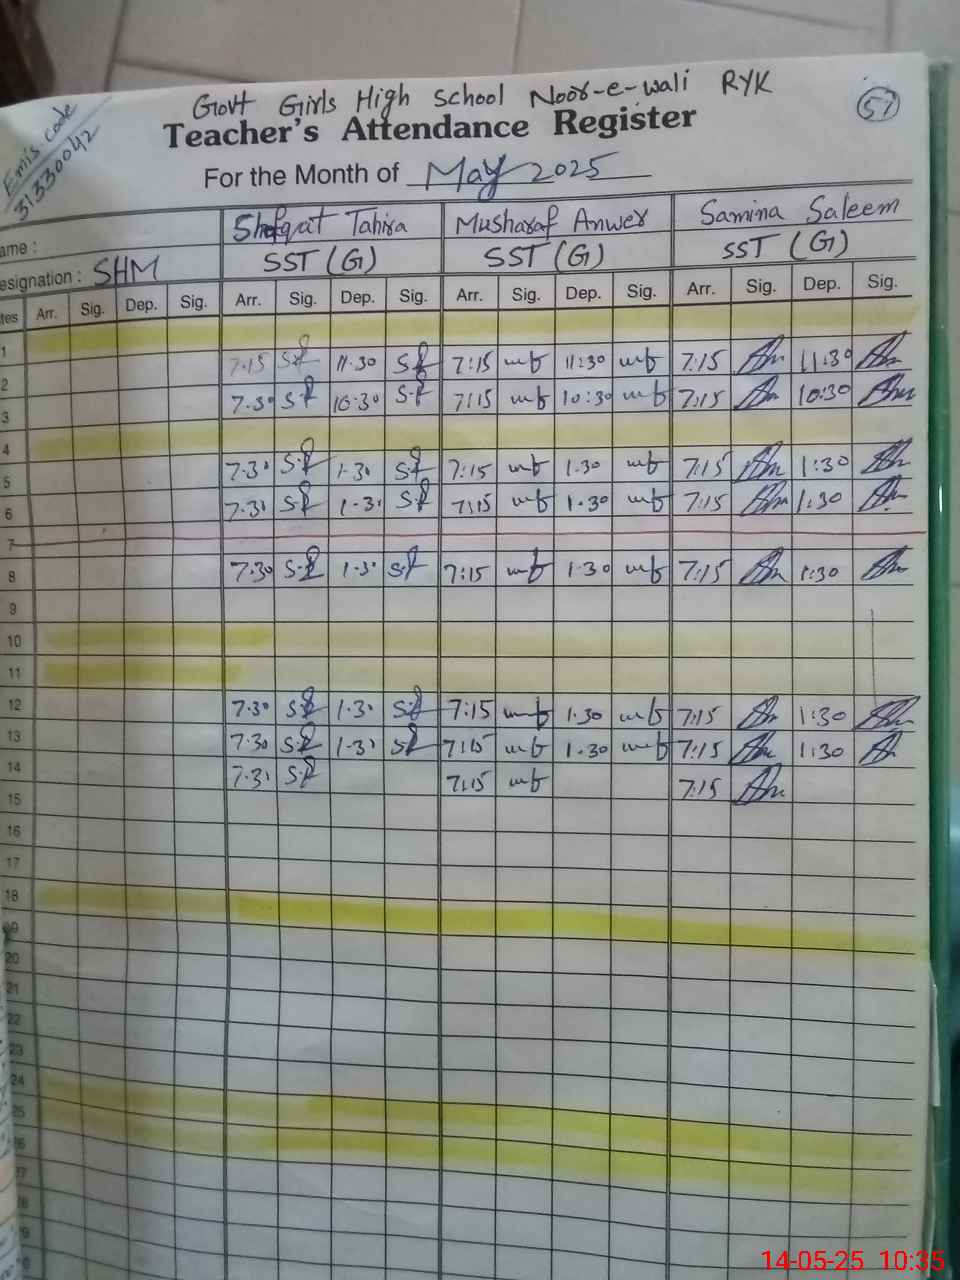 Emis code
31330042
Govt Girls High School Noor-e-wali RYK
57
Teacher's Attendance Register
For the Month of May 2025
ame : Shafqat Tahira Musharaf Anwer Samina Saleem
esignation : SHM SST (G) SST (G) SST (G)
tes Arr. Sig. Dep. Sig. Arr. Sig. Dep. Sig. Arr. Sig. Dep. Sig. Arr. Sig. Dep. Sig.
1
2 7.15 S.f 11.30 S.f 7:15 mf 11:30 mf 7:15 11:30
3 7.30 S.f 10.30 S.f 7:15 mf 10:30 mf 7:15 10:30
4
5 7.30 S.f 1.30 S.f 7:15 mf 1.30 mf 7:15 1:30
6 7.30 S.f 1.30 S.f 7:15 mf 1.30 mf 7:15 1:30
7
8 7.30 S.f 1.30 S.f 7:15 mf 1.30 mf 7:15 1:30
9
10
11
12 7.30 S.f 1.30 S.f 7:15 mf 1.30 mf 7:15 1:30
13 7.30 S.f 1.30 S.f 7:15 mf 1.30 mf 7:15 1:30
14 7.30 S.f 7:15 mf 7:15
15
16
17
18
19
20
21
22
23
24
25
26
27
28
29
14-05-25 10:35